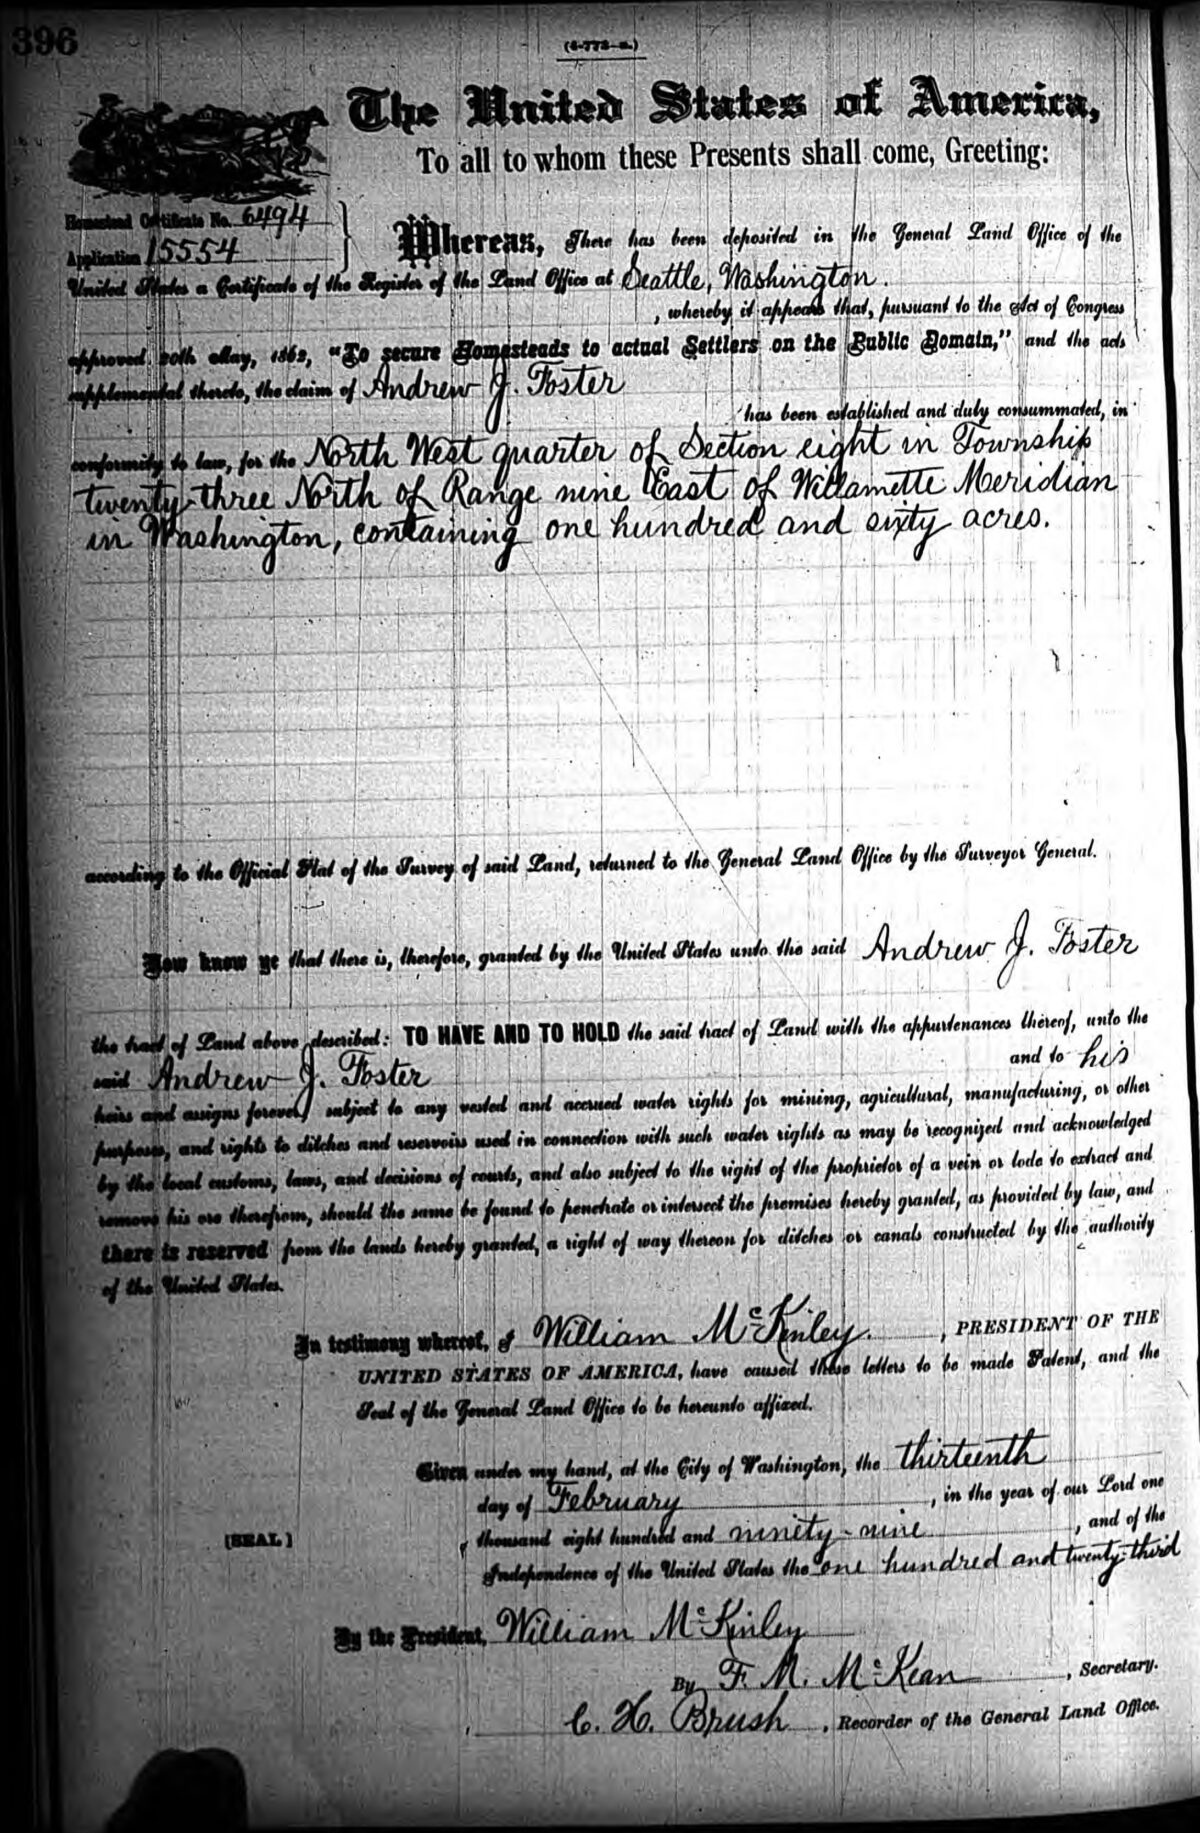 396
(4-772-a.)
The United States of America,
To all to whom these Presents shall come, Greeting:
Homestead Certificate No. 6494
Application 15554
Whereas, There has been deposited in the General Land Office of the
United States a Certificate of the Register of the Land Office at Seattle, Washington.
, whereby it appears that, pursuant to the Act of Congress
approved 20th May, 1862, "To secure Homesteads to actual Settlers on the Public Domain," and the acts
supplemental thereto, the claim of Andrew J. Foster
has been established and duly consummated, in
conformity to law, for the North West quarter of Section eight in Township
twenty-three North of Range nine East of Willamette Meridian
in Washington, containing one hundred and sixty acres.
according to the Official Plat of the Survey of said Land, returned to the General Land Office by the Surveyor General.
Now know ye that there is, therefore, granted by the United States unto the said Andrew J. Foster
the tract of Land above described: TO HAVE AND TO HOLD the said tract of Land with the appurtenances thereof, unto the
said Andrew J. Foster and to his
heirs and assigns forever, subject to any vested and accrued water rights for mining, agricultural, manufacturing, or other
purposes, and rights to ditches and reservoirs used in connection with such water rights as may be recognized and acknowledged
by the local customs, laws, and decisions of courts, and also subject to the right of the proprietor of a vein or lode to extract and
remove his ore therefrom, should the same be found to penetrate or intersect the premises hereby granted, as provided by law, and
there is reserved from the lands hereby granted, a right of way thereon for ditches or canals constructed by the authority
of the United States.
In testimony whereof, I William McKinley, PRESIDENT OF THE
UNITED STATES OF AMERICA, have caused these letters to be made Patent, and the
Seal of the General Land Office to be hereunto affixed.
Given under my hand, at the City of Washington, the thirteenth
day of February, in the year of our Lord one
[SEAL] thousand eight hundred and ninety-nine, and of the
Independence of the United States the one hundred and twenty-third
By the President, William McKinley
By F. M. McKean, Secretary.
C. H. Brush, Recorder of the General Land Office.